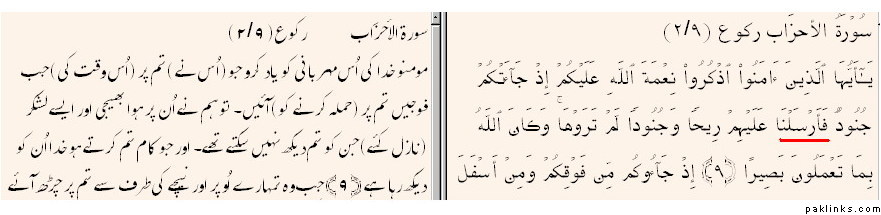 سُورَةُ الأحزَاب رکوع (٢/٩)
يَـٰٓأَيُّهَا ٱلَّذِينَ ءَامَنُوا۟ ٱذْكُرُوا۟ نِعْمَةَ ٱللَّهِ عَلَيْكُمْ إِذْ جَآءَتْكُمْ
جُنُودٌۭ فَأَرْسَلْنَا عَلَيْهِمْ رِيحًۭا وَجُنُودًۭا لَّمْ تَرَوْهَا ۚ وَكَانَ ٱللَّهُ
بِمَا تَعْمَلُونَ بَصِيرًا ﴿٩﴾ إِذْ جَآءُوكُم مِّن فَوْقِكُمْ وَمِنْ أَسْفَلَ
سورة الأحزَاب رکوع (٢/٩)
مومنو خدا کی اُس مہربانی کو یاد کرو جو (اُس نے) تم پر (اُس وقت کی) جب
فوجیں تم پر (حملہ کرنے کو) آئیں۔ تو ہم نے اُن پر ہوا بھیجی اور ایسے لشکر
(نازل کئے) جن کو تم دیکھ نہیں سکتے تھے۔ اور جو کام تم کرتے ہو خدا اُن کو
دیکھ رہا ہے ﴿٩﴾ جب وہ تمہارے اُوپر اور نیچے کی طرف سے تم پر چڑھ آئے
paklinks.com